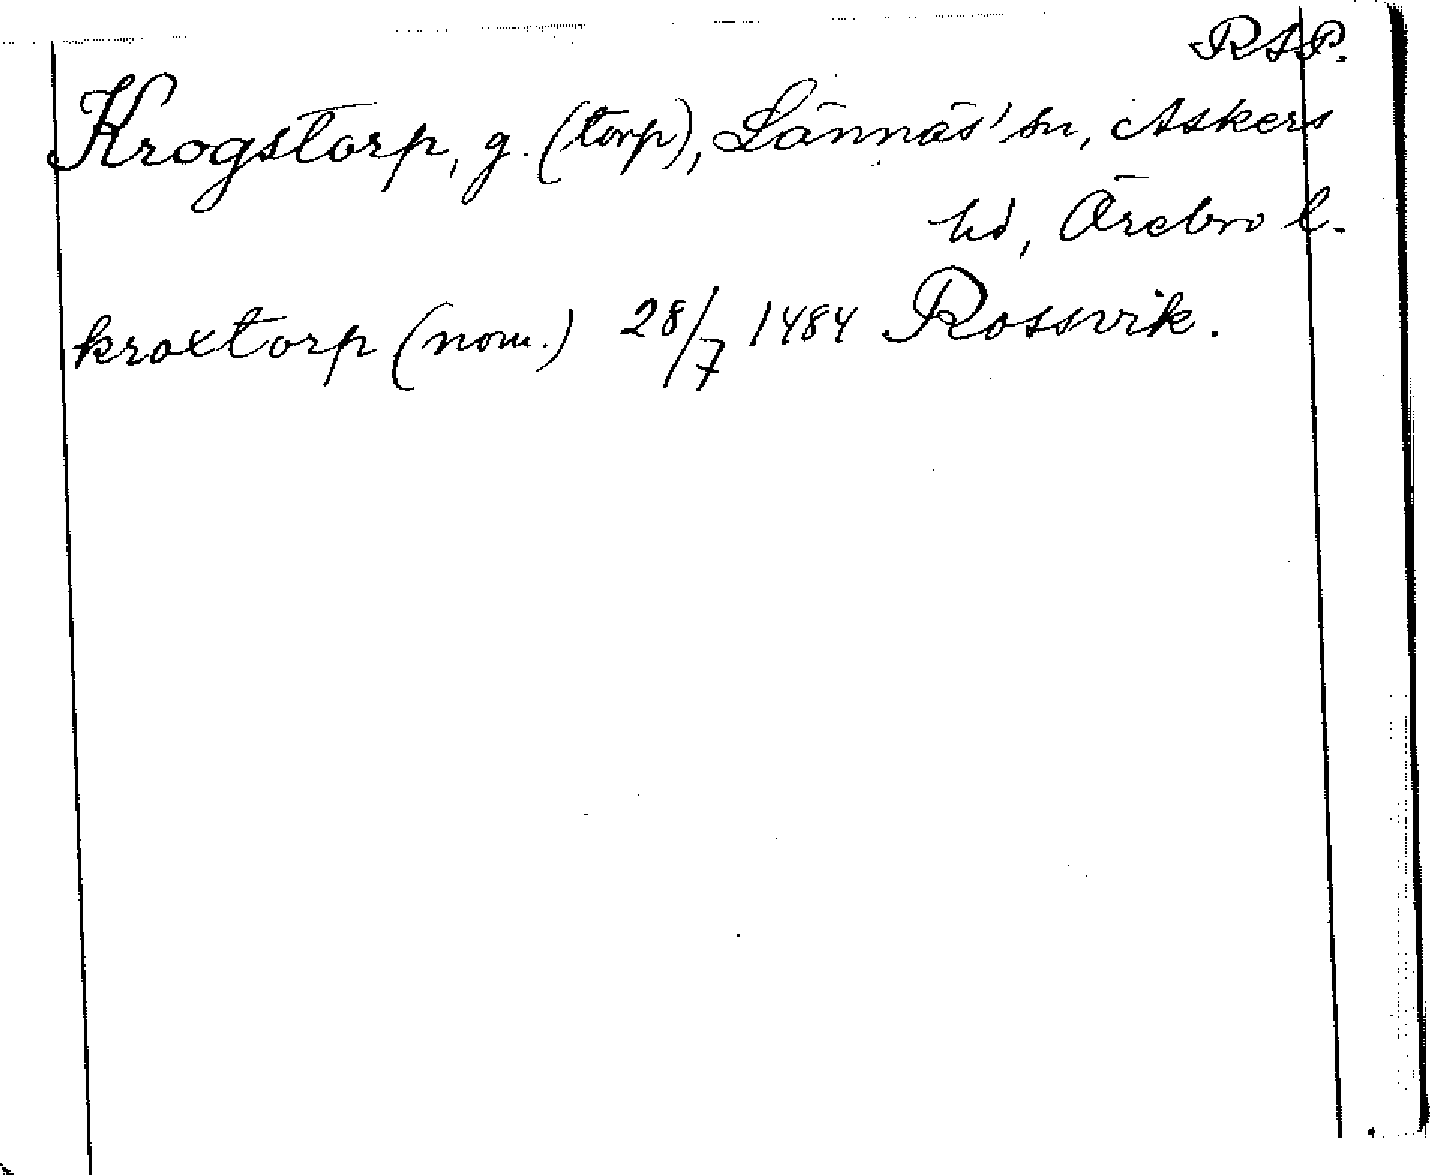 RAP.
Krogstorp, g. (torp), Lännäs' sn, Askers
hd, Örebro l.
kroxtorp (nom.) 28/7 1484 Rossvik.